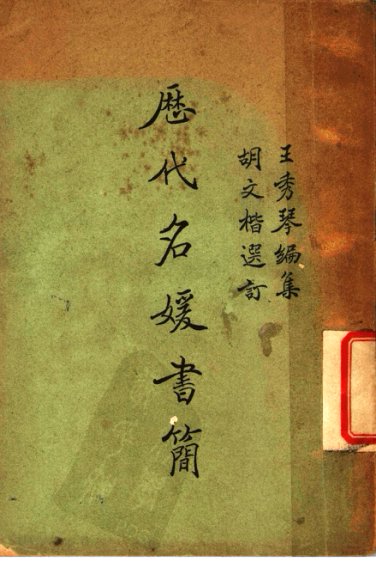 王秀琴編集
胡文楷選訂
歷代名媛書簡